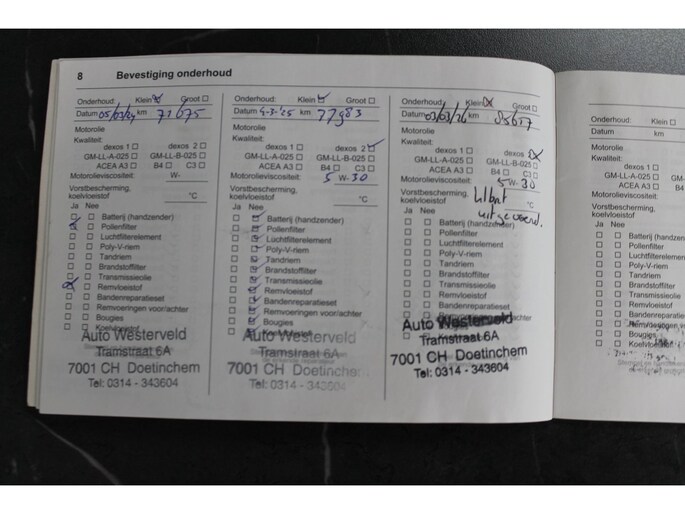 8 Bevestiging onderhoud
Onderhoud: Klein Groot
Datum 05/03/24 km 71675
Motorolie
Kwaliteit:
dexos 1 dexos 2
GM-LL-A-025 GM-LL-B-025
ACEA A3 B4 C3
Motorolieviscositeit: W-
Vorstbescherming,
koelvloeistof °C
Ja Nee
Batterij (handzender)
Pollenfilter
Luchtfilterelement
Poly-V-riem
Tandriem
Brandstoffilter
Transmissieolie
Remvloeistof
Bandenreparatieset
Remvoeringen voor/achter
Bougies
Koelvloeistof
Auto Westerveld
Tramstraat 6A
7001 CH Doetinchem
Tel: 0314 - 343604
Onderhoud: Klein Groot
Datum 4-3-'25 km 77983
Motorolie
Kwaliteit:
dexos 1 dexos 2
GM-LL-A-025 GM-LL-B-025
ACEA A3 B4 C3
Motorolieviscositeit: 5 W- 30
Vorstbescherming,
koelvloeistof °C
Ja Nee
Batterij (handzender)
Pollenfilter
Luchtfilterelement
Poly-V-riem
Tandriem
Brandstoffilter
Transmissieolie
Remvloeistof
Bandenreparatieset
Remvoeringen voor/achter
Bougies
Auto Westerveld
Tramstraat 6A
7001 CH Doetinchem
Tel: 0314 - 343604
Onderhoud: Klein Groot
Datum 02/03/26 km 85617
Motorolie
Kwaliteit:
dexos 1 dexos 2
GM-LL-A-025 GM-LL-B-025
ACEA A3 B4 C3
Motorolieviscositeit: 5 W- 30
Vorstbescherming,
koelvloeistof °C
uitgevoerd.
Ja Nee
Batterij (handzender)
Pollenfilter
Luchtfilterelement
Poly-V-riem
Tandriem
Brandstoffilter
Transmissieolie
Remvloeistof
Bandenreparatieset
Remvoeringen voor/achter
Bougies
Auto Westerveld
Tramstraat 6A
7001 CH Doetinchem
Tel: 0314 - 343604
Onderhoud: Klein
Datum km
Motorolie
Kwaliteit:
dexos 1
GM-LL-A-025
ACEA A3
Motorolieviscositeit:
Vorstbescherming,
koelvloeistof
Ja Nee
Batterij (handzender)
Pollenfilter
Luchtfilterelement
Poly-V-riem
Tandriem
Brandstoffilter
Transmissieolie
Remvloeistof
Bandenreparatieset
Remvoeringen
Bougies
Koelvloeistof